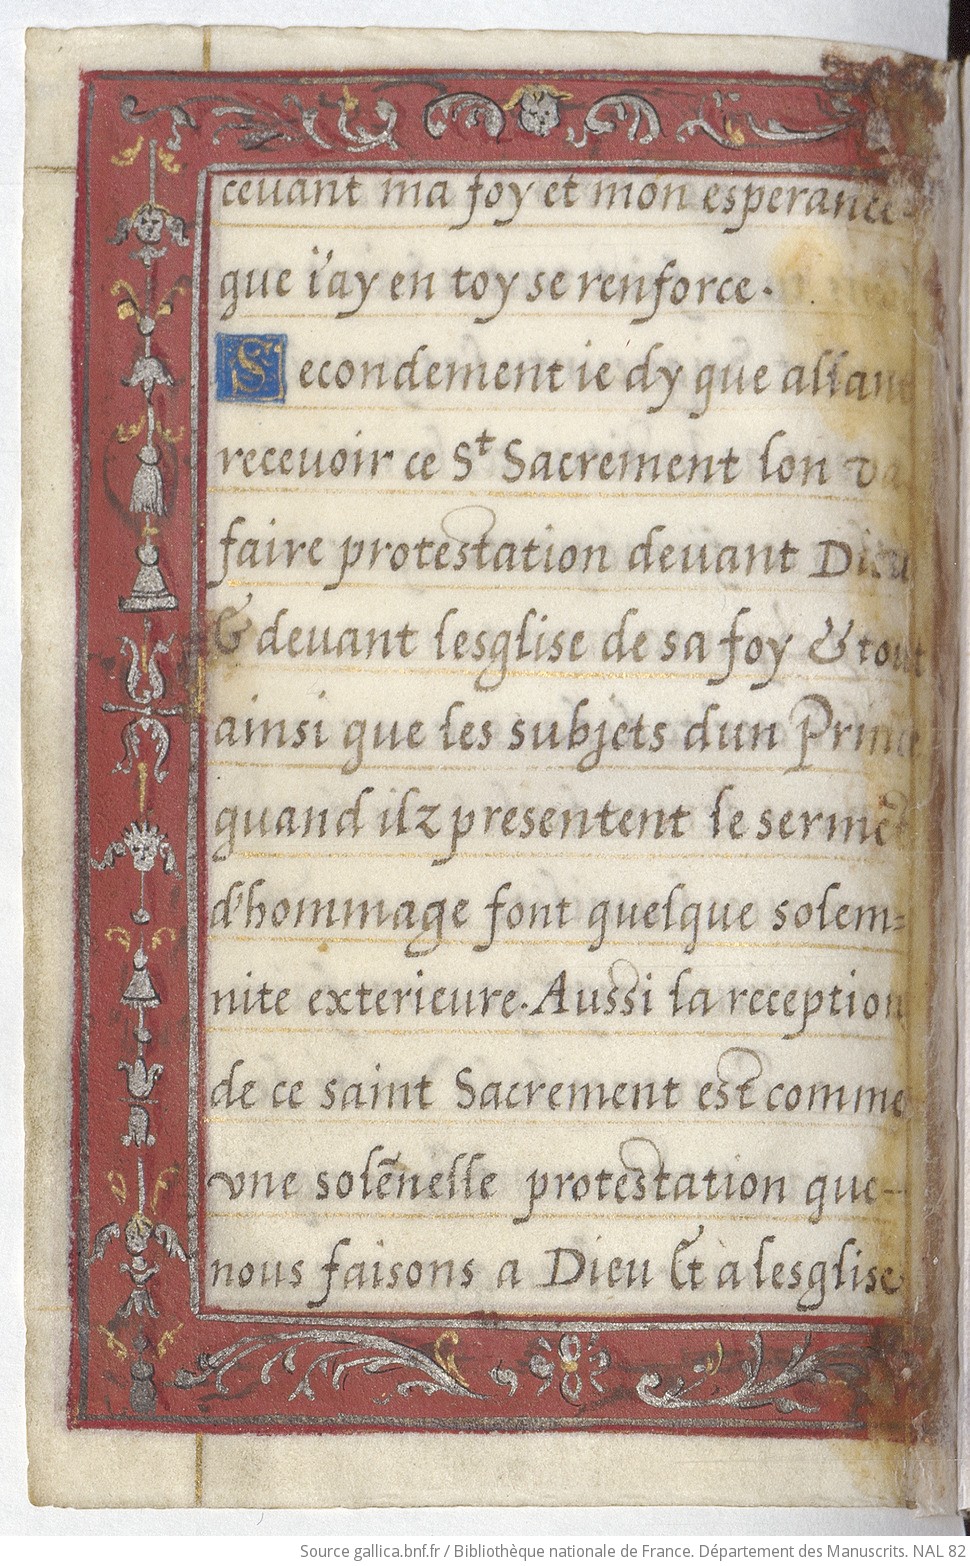 ceuant ma foy et mon esperance
que i'ay en toy se renforce.
Secondement ie dy que allant
receuoir ce St Sacrement lon va
faire protestation deuant Dieu
& deuant lesglise de sa foy & tout
ainsi que les subjets dun Prince
quand ilz presentent le sermēt
d'hommage font quelque solem=
nite exterieure. Aussi la reception
de ce saint Sacrement est comme
vne solēnelle protestation que-
nous faisons a Dieu Et a lesglise
Source gallica.bnf.fr / Bibliothèque nationale de France. Département des Manuscrits. NAL 82